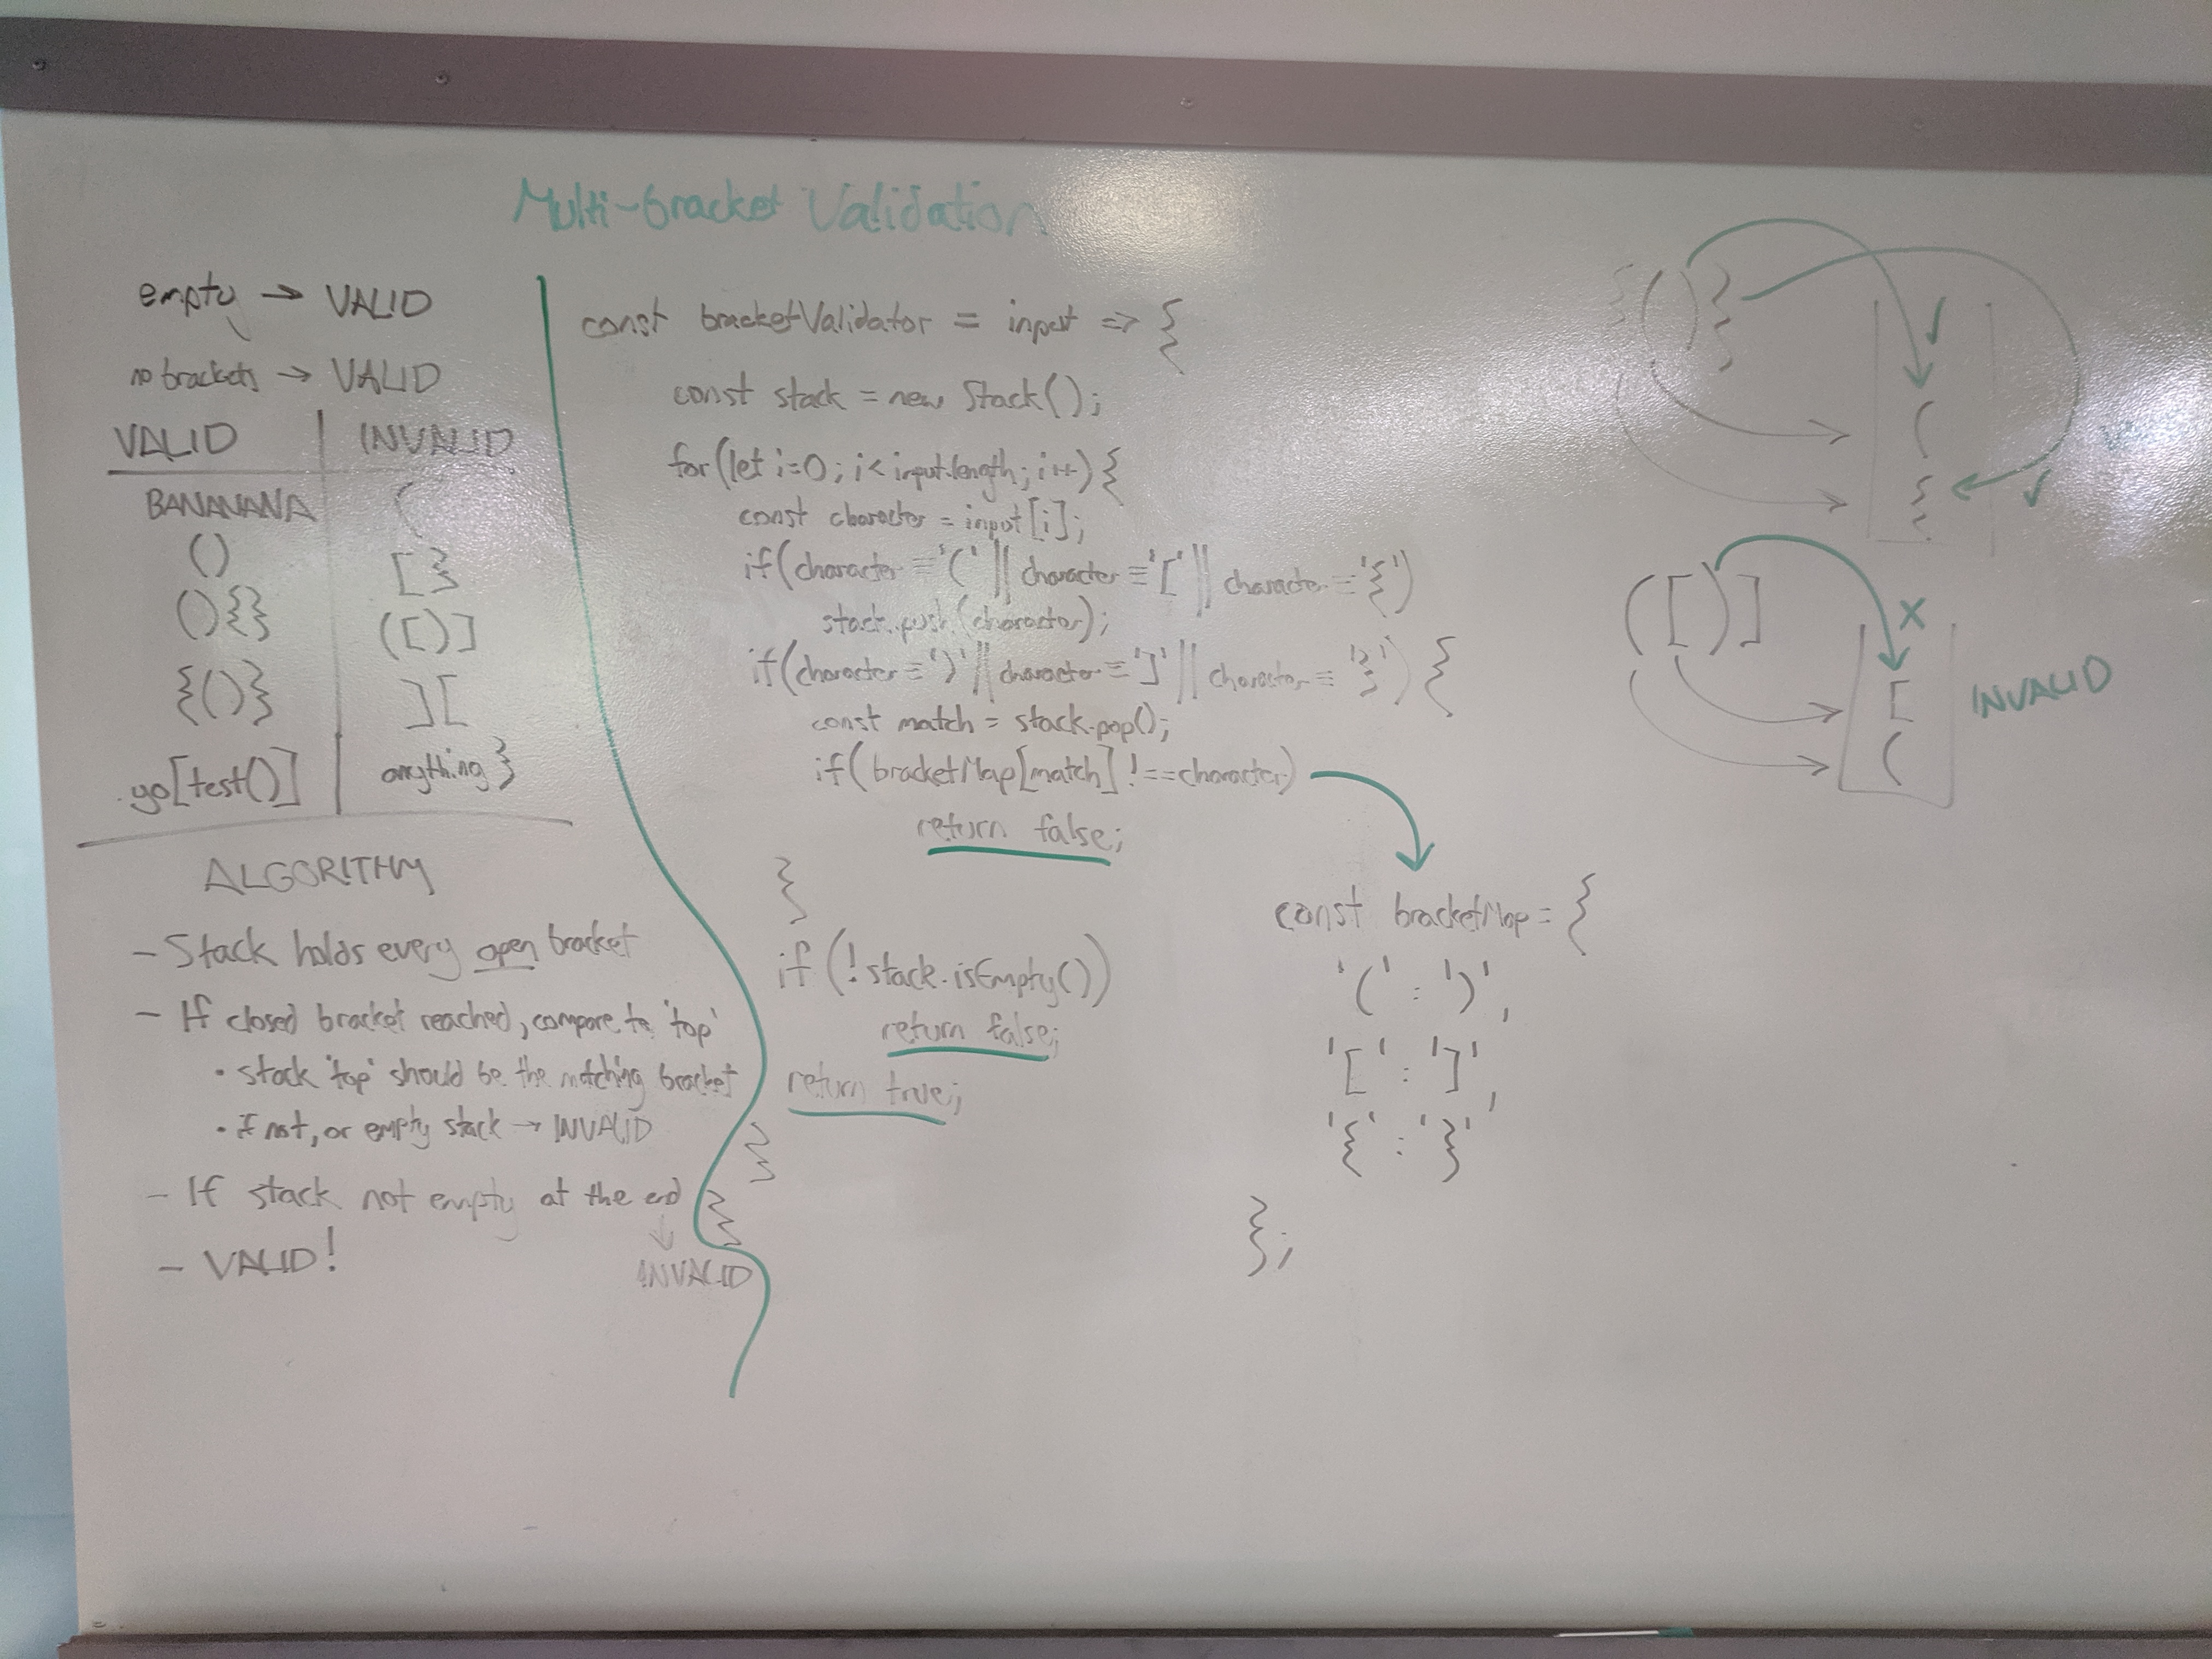 Multi-bracket Validation
empty → VALID
no brackets → VALID
VALID | INVALID
BANANANA | (
() | [}
(){} | ([)]
{()} | ][
yo[test()] | anything}
ALGORITHM
- Stack holds every open bracket
- If closed bracket reached, compare to 'top'
• stack 'top' should be the matching bracket
• if not, or empty stack → INVALID
- If stack not empty at the end
↓
INVALID
- VALID!
const bracketValidator = input => {
const stack = new Stack();
for(let i=0; i<input.length; i++){
const character = input[i];
if(character === '(' || character === '[' || character === '{')
stack.push(character);
if(character === ')' || character === ']' || character === '}') {
const match = stack.pop();
if(bracketMap[match] !== character)
return false;
}
if(!stack.isEmpty())
return false;
return true;
}
}
const bracketMap = {
'(' : ')',
'[' : ']',
'{' : '}'
};
{()}
✓
(
{
✓
([)]
X
[
(
INVALID